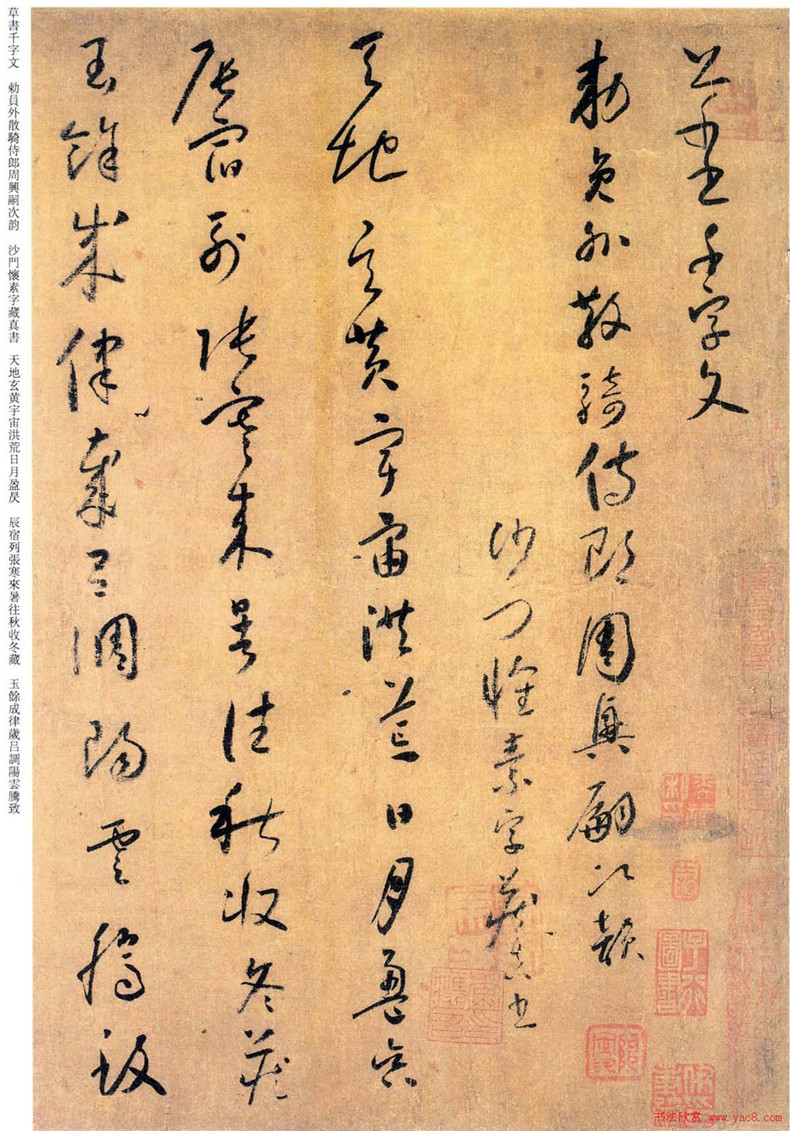 草書千字文
勅員外散騎侍郎周興嗣次韻
沙門懷素字藏真書
天地玄黃宇宙洪荒日月盈昃
辰宿列張寒來暑往秋收冬藏
玉餘成律歲呂調陽雲騰致
草書千字文 勅員外散騎侍郎周興嗣次韵 沙門懷素字藏真書 天地玄黄宇宙洪荒日月盈昃 辰宿列張寒來暑往秋收冬藏 玉餘成律歲吕調陽雲騰致
书法欣赏 www.yac8.com